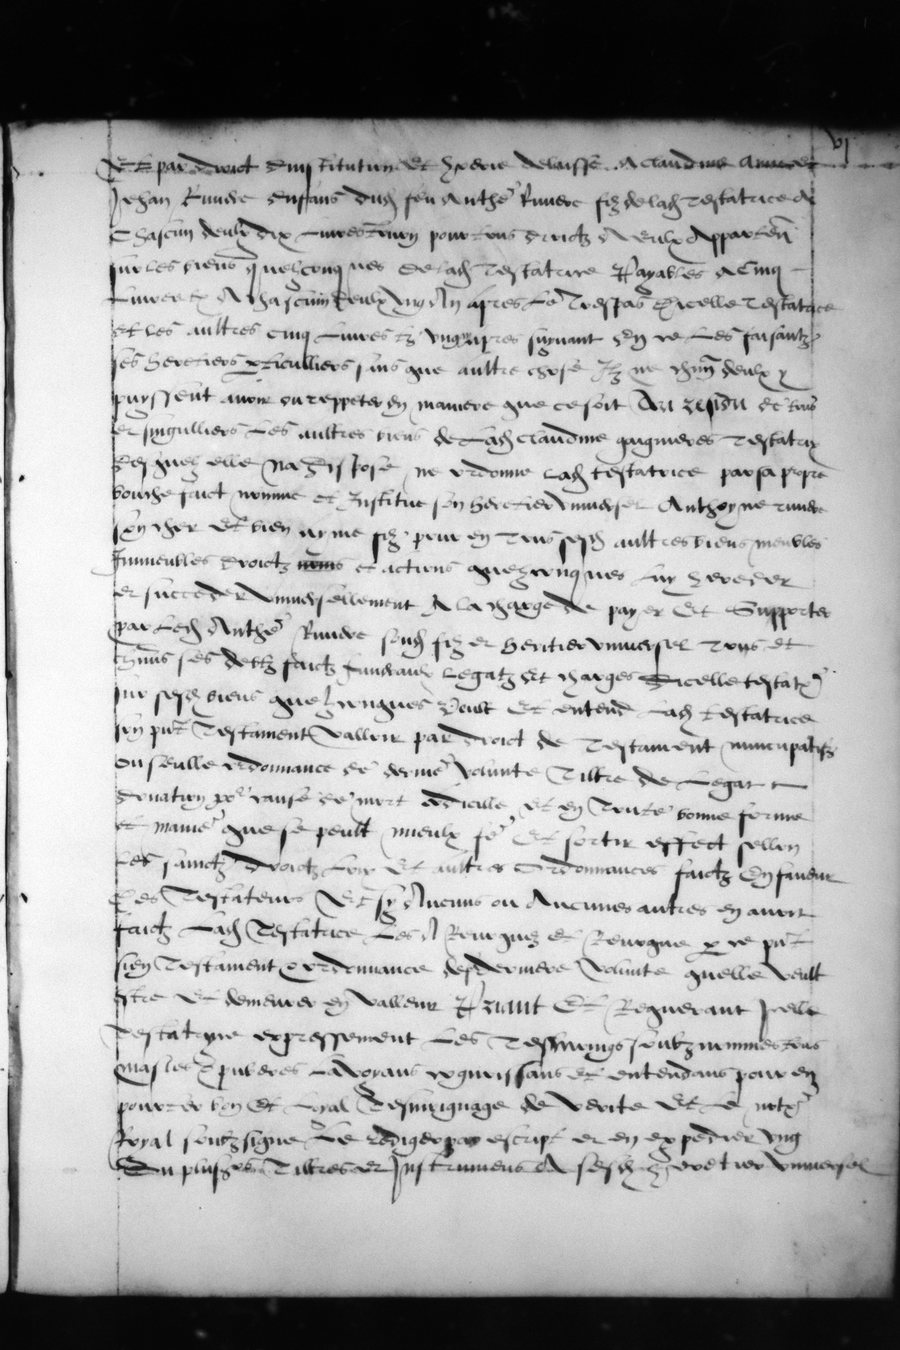 vj
Et par droict dinstitution et hoierie delaisse a Claudine
Jehan Rivoire enfans dud feu Anthe Rivoire filz de lad testatrice a
chascun deulx dix livres tourn pour tous droictz a eulx apparten
sur les biens quelzconques de lad testatrice payables a cinq
livres tz a chascun deulx ung an apres le trespas dicelle testatrice
et les aultres cinq livres tz ung apres suyvant en ce les faisantz
ses heretiers particulliers sans que aultre chose ilz ne chun deulx y
puyssent avoir ou reppeter en maniere que ce soit Au residu de tous
et singulliers les aultres biens de lad Claudine testatrix
desquelz elle na dispose ne ordonne lad testatrice par sa propre
bouche faict nomme et institue son heretier universel Anthoyne Rivoire
son cher et bien ayme filz pour en tous sesd aultres biens meubles
immeubles droictz noms et actions quelzconques luy hereder
et succeder universellement a la charge de payer et supporter
par led Anthe Rivoire sond filz et heritier universel tous et
chuns ses debtz faictz funeraulx legatz et charges dicelle testatx
sur sesd biens quelzconques Voult et entend lad testatrice
son pnt testament valloir par droict de testament nuncupatifz
ou seulle ordonnance de derniere volunte tiltre de legat
donation pour cause de mort et en toute bonne forme
et maniere que se peult mieulx fe et sortir effect sellon
les sainctz droictz loix et aultres ordonnances faictz en faveur
des testateurs Et sy aucuns ou aucunes autres en avoit
faictz lad testatrice les a revoquez et revoque par ce pnt
sien testament et ordonnance de derniere volunte quelle veult
estre et demeurer en valleur Priant et requerant icelle
testatrice expressement les tesmoings soubz nommes tous
masles puberes la voyans cognoissans et entendans pour en
pourter bon et loyal tesmoignage de verite et le notre
Royal soubzsigne le rediger par escript et en expedier ung
ou plusrs tiltres et instrumens a sesd heretier universel